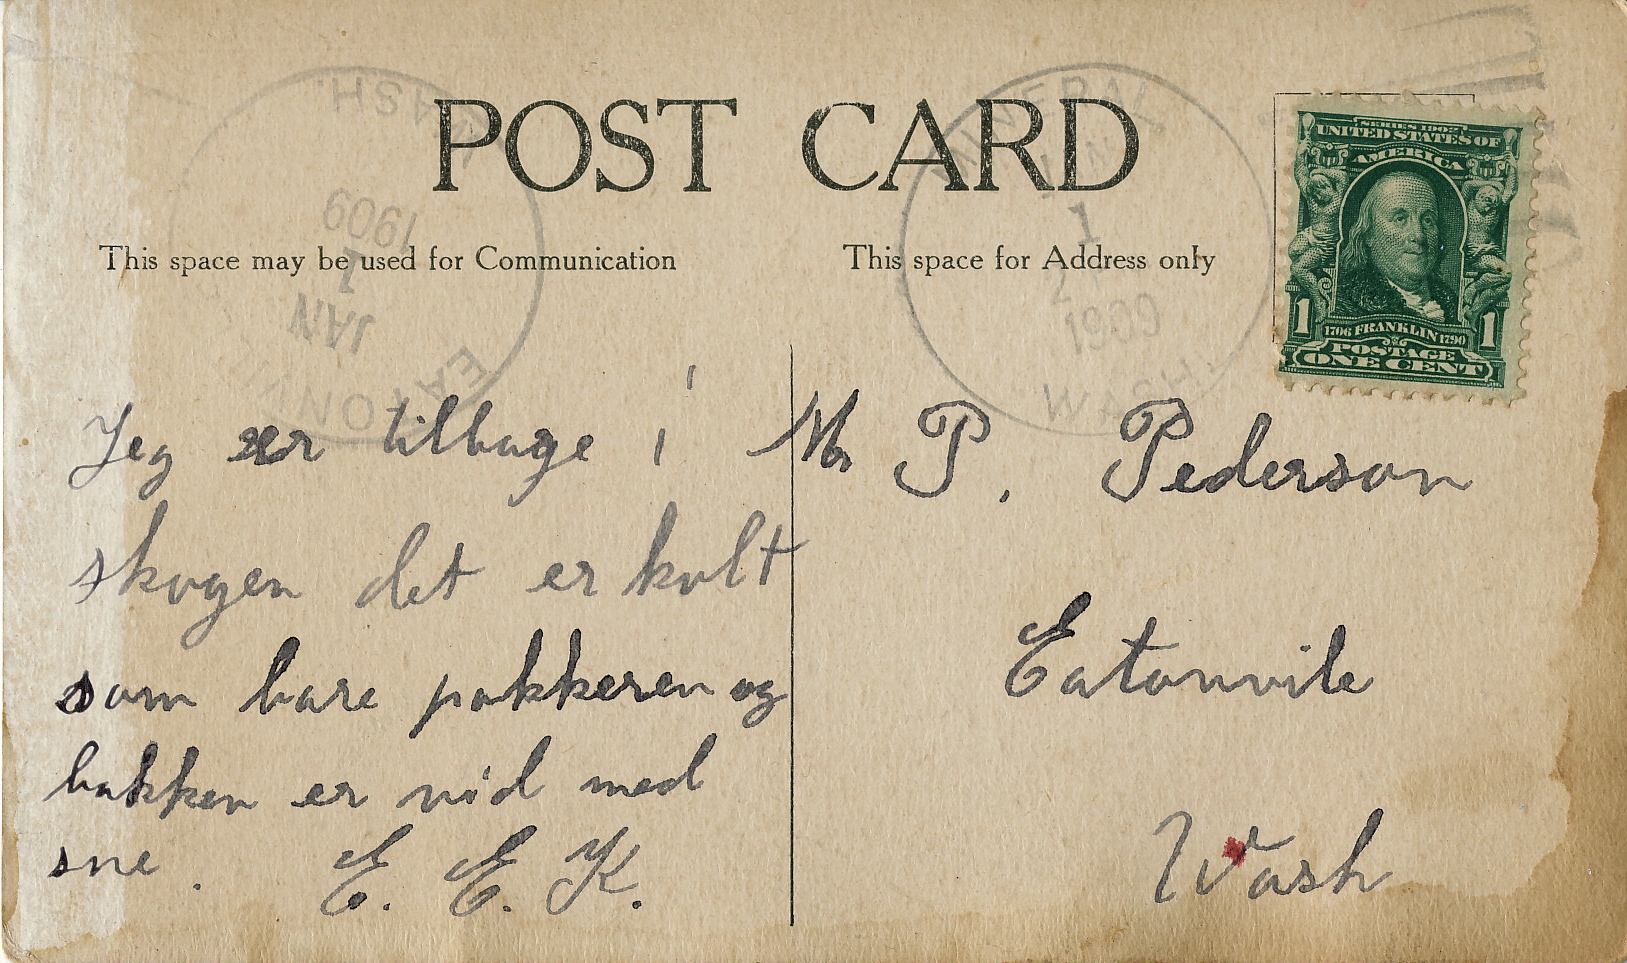 POST CARD
WASH.
1909
1
JAN
EATONVI
MINERAL,
JAN
1
1909
WASH.
SERIES 1902
UNITED STATES OF
AMERICA
1 1
1706 FRANKLIN 1790
POSTAGE
ONE CENT
This space may be used for Communication
This space for Address only
Jeg er tilbage i
skogen det er kolt
som bare pokkeren og
bakken er vid med
sne.
E. E. K.
Mr P. Pederson
Eatonvile
Wash